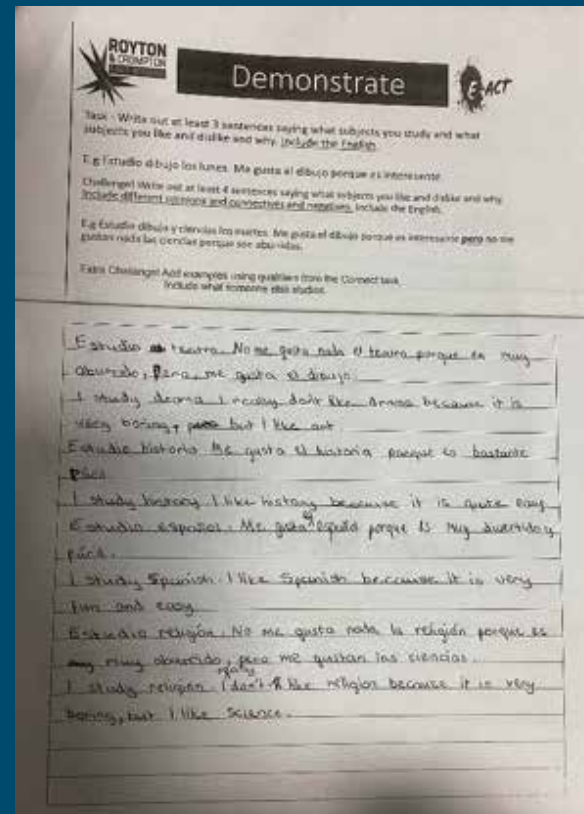 ROYTON
& CROMPTON
Demonstrate
E-ACT
Task - Write out at least 3 sentences saying what subjects you study and what
subjects you like and dislike and why. Include the English.
E.g Estudio dibujo los lunes. Me gusta el dibujo porque es interesante.
Challenge! Write out at least 4 sentences saying what subjects you like and dislike and why.
Include different opinions and connectives and negatives. Include the English.
E.g Estudio dibujo y ciencias los martes. Me gusta el dibujo porque es interesante pero no me
gustan nada las ciencias porque son aburridas.
Extra Challenge! Add examples using qualifiers from the Connect task.
Include what someone else studies.
Estudio teatro. No me gusta nada el teatro porque es muy
pero me gusta el dibujo.
I study drama I really don't like drama because it is
very boring, but I like art.
Estudio historia Me gusta el historia porque es bastante
I study history I like history because it is quite easy
Estudio español. Me gusta porque es muy divertido y
I study Spanish. I like Spanish because it is very
fun and easy
Estudio religión. No me gusta nada la religión porque es
muy pero me gustan las ciencias.
I study religion I really don't like religion because it is very
boring, but I like science.